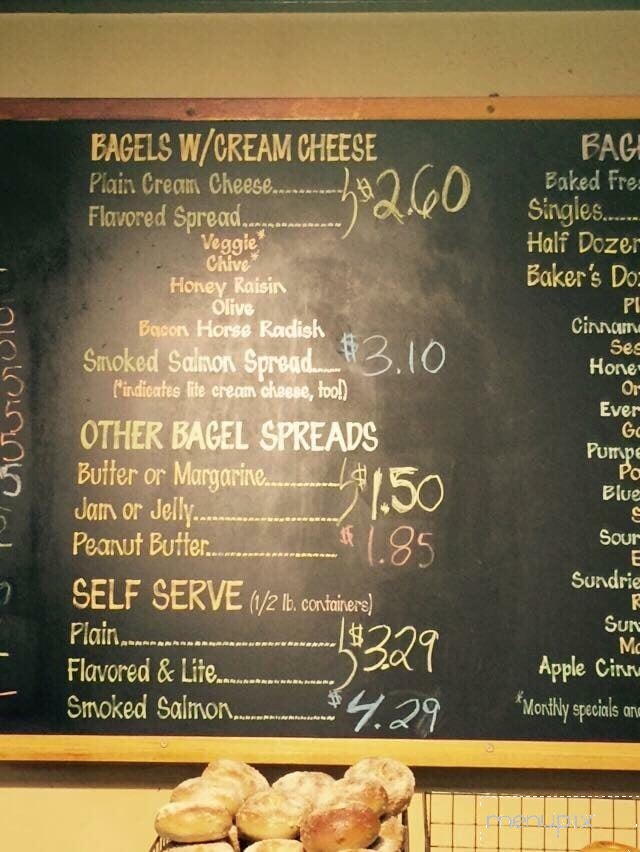 BAGELS W/CREAM CHEESE
Plain Cream Cheese........ $2.60
Flavored Spread........
Veggie*
Chive*
Honey Raisin
Olive
Bacon Horse Radish
Smoked Salmon Spread..... $3.10
(*indicates lite cream cheese, too!)
OTHER BAGEL SPREADS
Butter or Margarine........ $1.50
Jam or Jelly........
Peanut Butter........ $1.85
SELF SERVE (1/2 lb. containers)
Plain........ $3.29
Flavored & Lite........
Smoked Salmon........ $4.29
BAG
Baked Fre
Singles.....
Half Dozen
Baker's Do
Pl
Cinnam
Ses
Honey
On
Ever
Ga
Pumpe
Po
Blue
S
Sour
E
Sundrie
R
Sun
Mo
Apple Cinn
*Monthly specials an
menupix